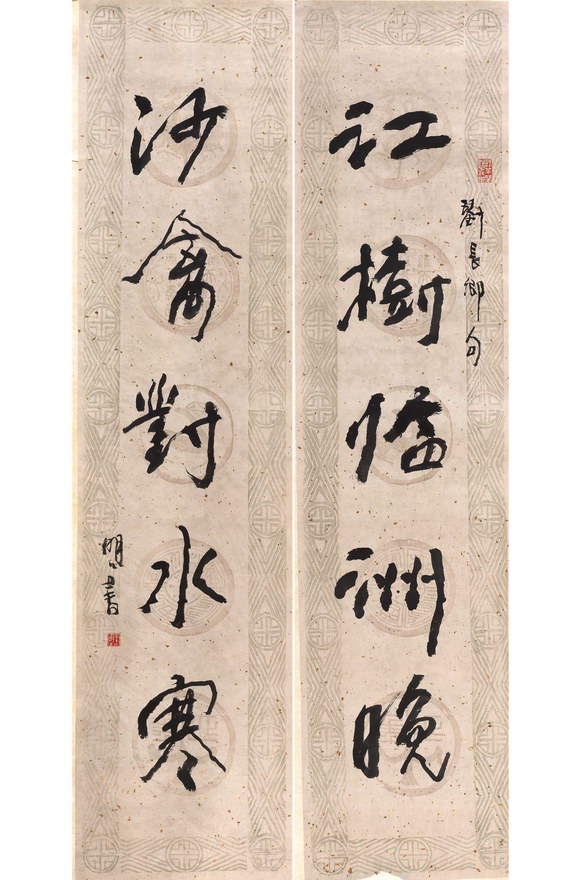 劉長卿句
江樹臨洲晚
沙禽對水寒
明之書